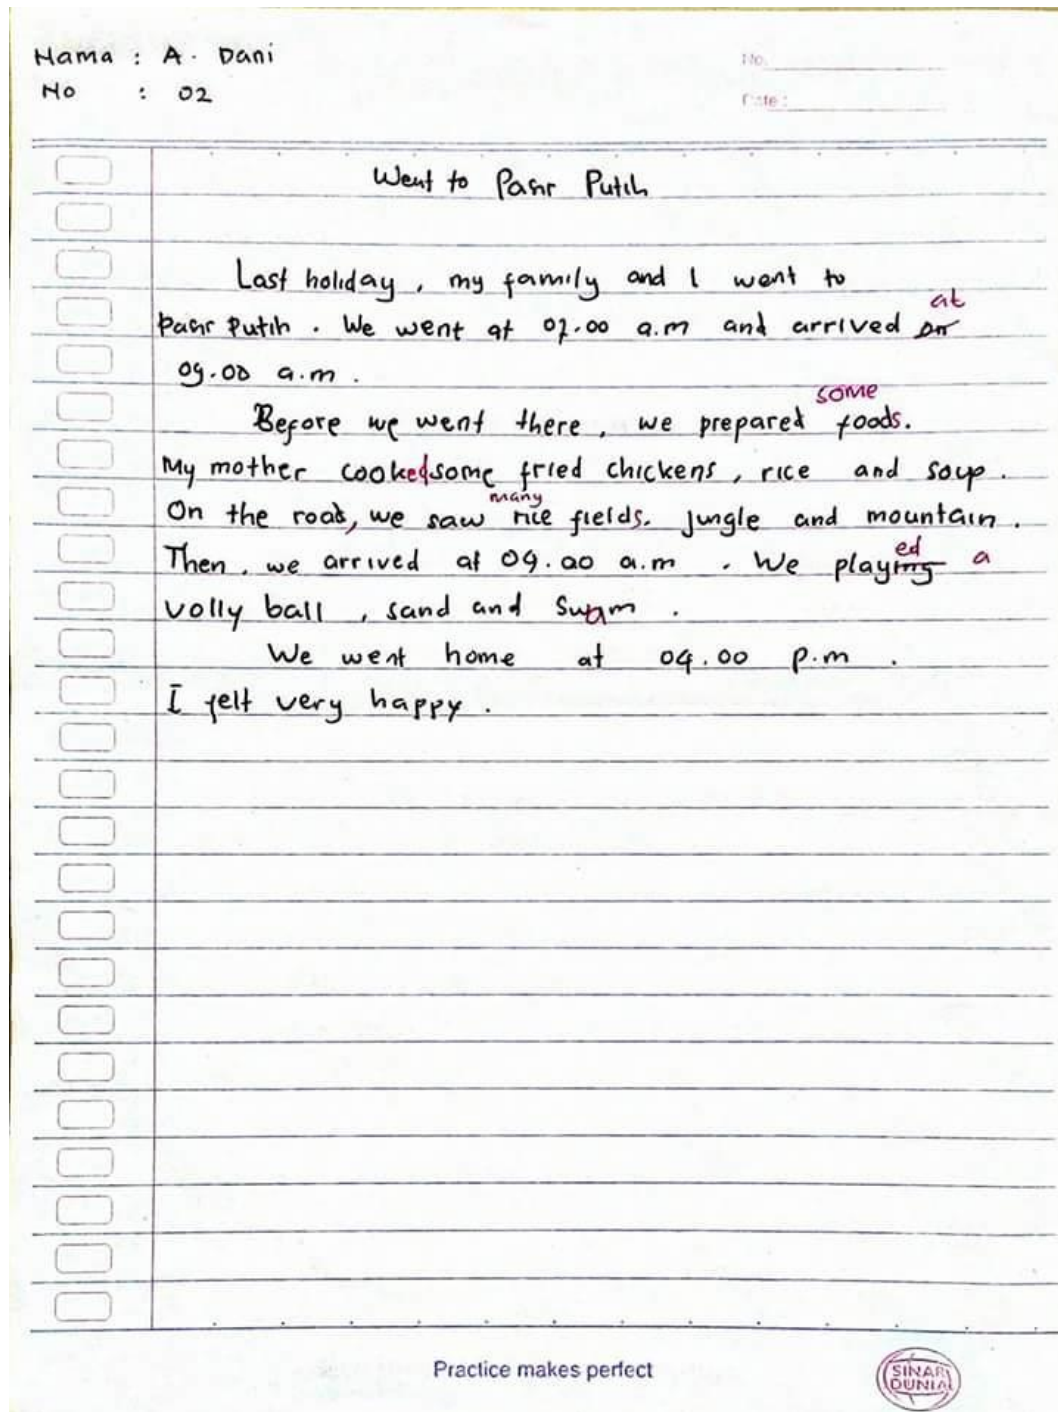 Nama : A. Dani
No.
No : 02
Date :
Went to Pasir Putih
Last holiday, my family and I went to
at
Pasir Putih. We went at 07.00 a.m and arrived on
09.00 a.m.
some
Before we went there, we prepared foods.
My mother cooked some fried chickens, rice and soup.
many
On the road, we saw rice fields. jungle and mountain.
ed
Then, we arrived at 09.00 a.m. We playing a
volly ball, sand and swam.
We went home at 04.00 p.m.
I felt very happy.
Practice makes perfect
SINAR
DUNIA